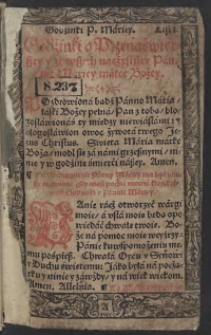 Godzinki P. Mariey. List 1
Godzinki o Przenaświęt-
szey y zawszey naczystszey Pan-
nie Mariey matce Bożey.
8.237
Pozdrowiona bądź Panno Maria
łaski Bożey pełna/ Pan z tobą/ bło-
gosławionaś ty miedzy niewiastámi: y
błogosławion owoc żywota twego Je-
zus Christus. Swięta Maria matko
Boża/ modl się zá námi grzesznymi/ ni-
nie y w godzinę śmierci nászey. Amen.
PAnie rácz otworzyć wárgi
moie/ á vstá moie będą opo-
wiedáć chwałę twoię. Bo-
że ná pomoc moię weyźrzy:
Pánie ku wspomożeniu me-
mu pośpiesz. Chwałá Oycu y Synowi
y Duchu świętemu: Jáko byłá ná począ-
tku y ninie y záwżdy/ y ná wiek wiekom.
Amen. Alleluia.